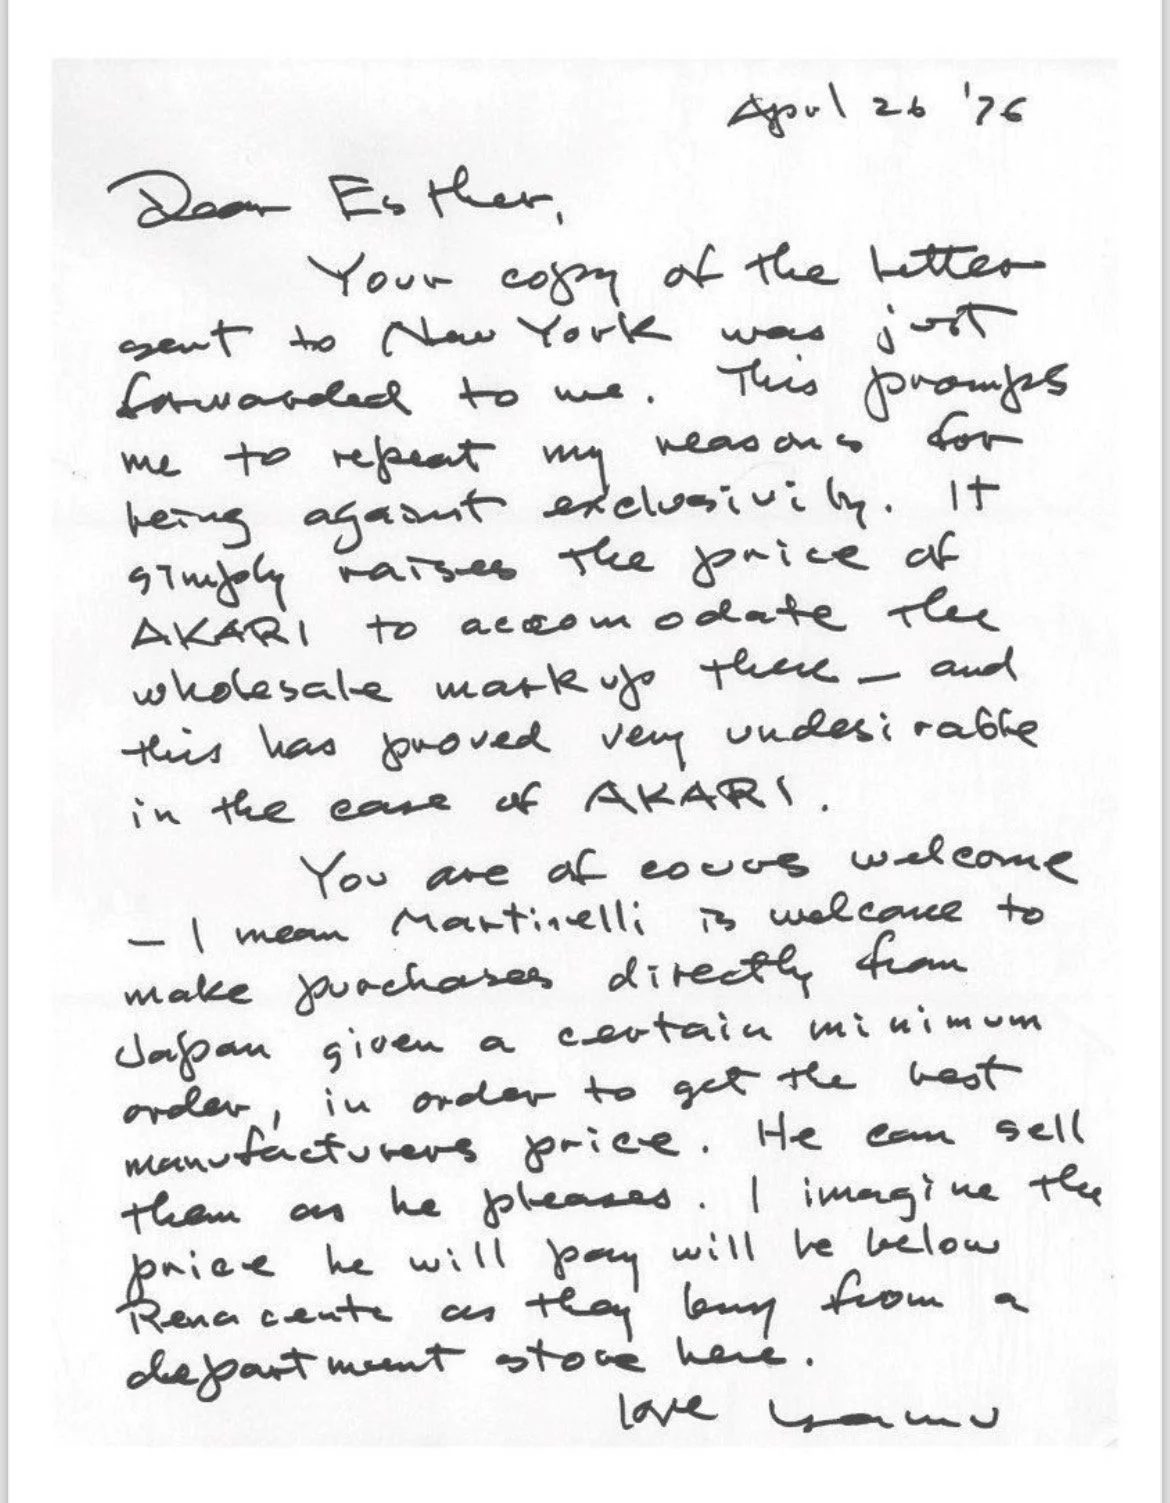 April 26 '76
Dear Esther,
Your copy of the letter
sent to New York was just
forwarded to me. This promps
me to repeat my reasons for
being against exclusivity. It
simply raises the price of
AKARI to accomodate the
wholesale markups there — and
this has proved very undesirable
in the case of AKARI.
You are of cours welcome
— I mean Martinelli is welcome to
make purchases directly from
Japan given a certain minimum
order, in order to get the best
manufacturers price. He can sell
them as he pleases. I imagine the
price he will pay will be below
Renacente as they buy from a
department store here.
love Isamu